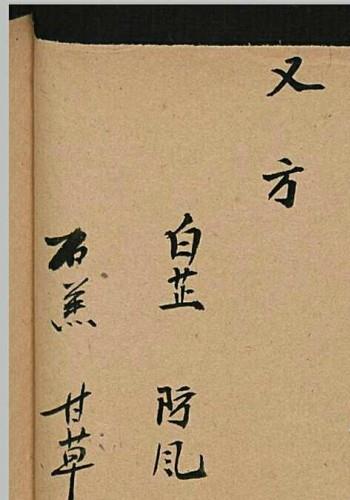 又方
白芷 防风
石羔 甘草